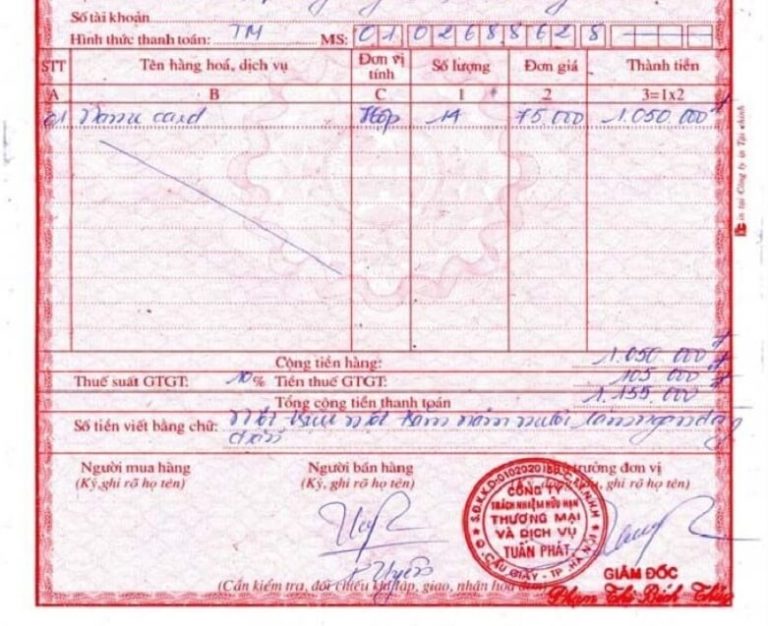 Số tài khoản
Hình thức thanh toán: TM MS: 0102688628
STT Tên hàng hoá, dịch vụ Đơn vị tính Số lượng Đơn giá Thành tiền
A B C 1 2 3=1x2
01 Name card Hộp 14 75.000 1.050.000đ
Cộng tiền hàng: 1.050 000đ
Thuế suất GTGT: 10% Tiền thuế GTGT: 105 000đ
Tổng cộng tiền thanh toán 1.155.000đ
Số tiền viết bằng chữ: Một triệu một trăm năm mươi lăm nghìn
đồng
Người mua hàng Người bán hàng trưởng đơn vị
(Ký, ghi rõ họ tên) (Ký, ghi rõ họ tên) ghi rõ họ tên)
CÔNG TY
TRÁCH NHIỆM HỮU HẠN
THƯƠNG MẠI
VÀ DỊCH VỤ
TUẤN PHÁT
Q. CẦU GIẤY - TP. HÀ NỘI
GIÁM ĐỐC
(Cần kiểm tra, đối chiếu khi lập, giao, nhận hoá
Phạm Thị Bích Thủy
in tại Công ty in Tài chính